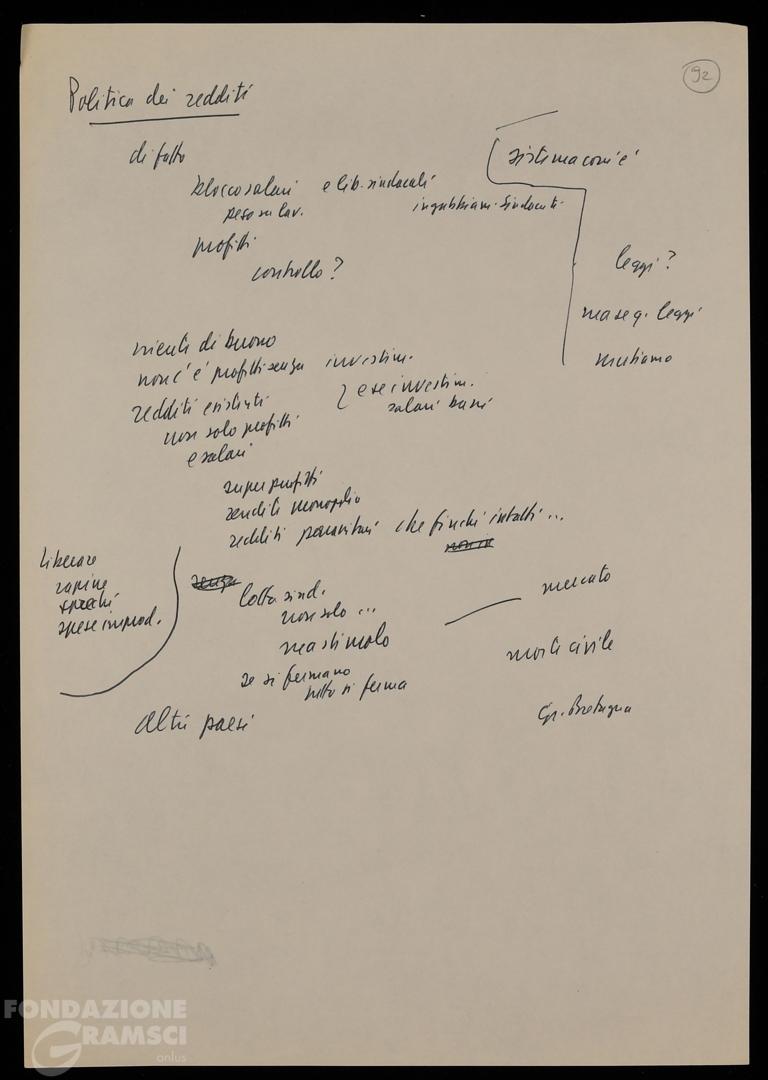 92
Politica dei redditi
di fatto
sistema com'è
blocco salari e lib. sindacali
peso su lav. ingabbiam. sindacati
profitti
controllo?
leggi?
ma se q. leggi
mutiamo
niente di buono
non c'è profitti senza investim.
redditi esistenti e se investim.
salari bassi
non solo profitti
e salari
superprofitti
rendite monopolio
redditi parassitari che finché intatti...
liberare
rapine
sprechi
spese improd.
senza
lotta sind.
non solo...
ma stimolo
se si fermano
tutto si ferma
mercato
morte civile
Altri paesi
Gr. Bretagna
FONDAZIONE
GRAMSCI
onlus